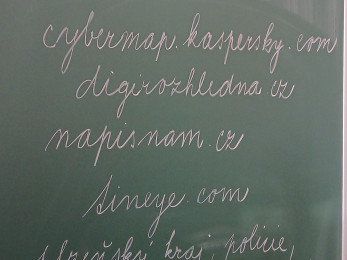 cybermap.kaspersky.com
digirozhledna.cz
napisnam.cz
tineye.com
kraj, policie,